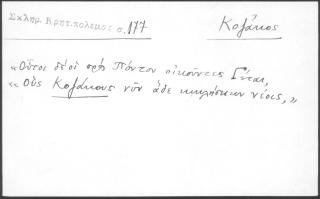 Σκληρ. Κρητ. πόλεμος σ. 177
Κοζάκος
«Οὗτοι δέ οἱ πρὸς Πόντον οἰκοῦντες Γέται,
«Οὓς Κοζάκους νῦν ὧδε κικλήσκειν νέοις,»